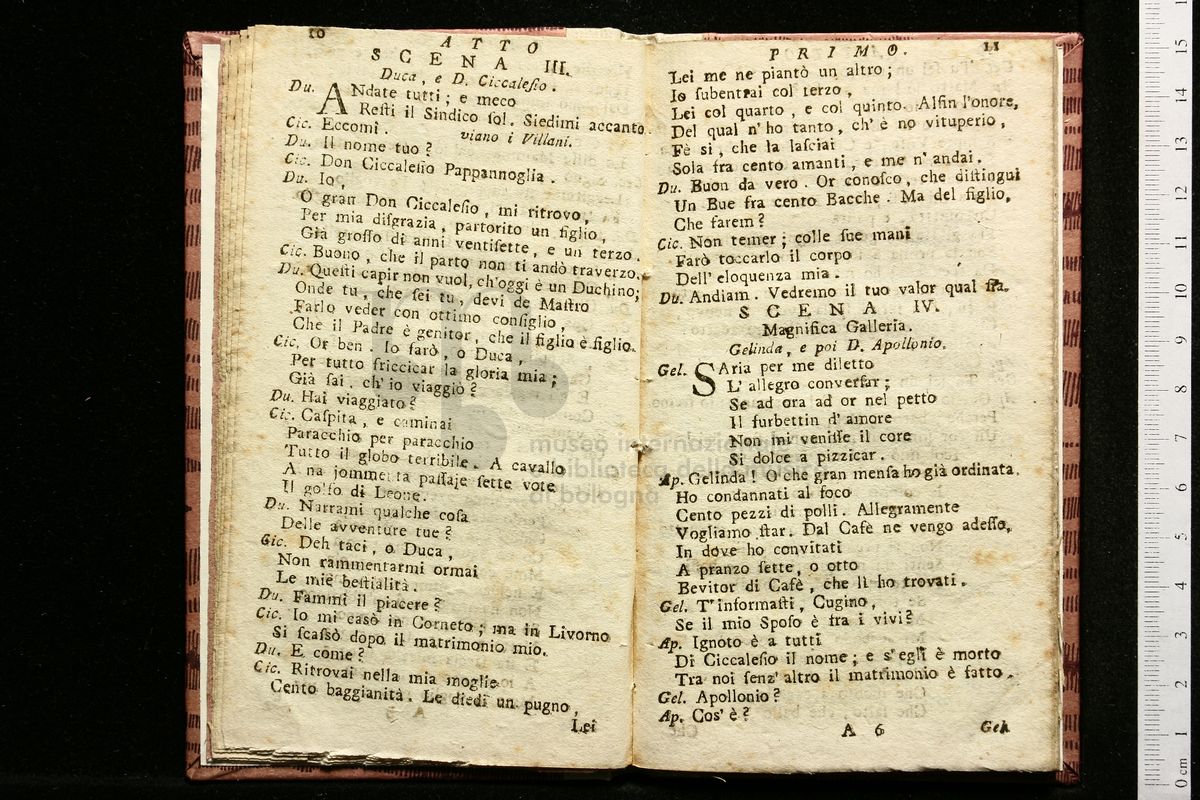 10
ATTO
SCENA III.
Duca, e D. Ciccalesio.
Du. ANdate tutti; e meco
Resti il Sindico sol. Siedimi accanto.
Cic. Eccomi. viano i Villani.
Du. Il nome tuo?
Cic. Don Ciccalesio Pappannoglia.
Du. Io,
O gran Don Ciccalesio, mi ritrovo,
Per mia disgrazia, partorito un figlio,
Già grosso di anni ventisette, e un terzo.
Cic. Buono, che il parto non ti andò traverzo.
Du. Questi capir non vuol, ch'oggi è un Duchino;
Onde tu, che sei tu, devi de Mastro
Farlo veder con ottimo consiglio,
Che il Padre è genitor, che il figlio è figlio.
Cic. Or ben. Io farò, o Duca,
Per tutto sriccicar la gloria mia;
Già sai, ch'io viaggiò?
Du. Hai viaggiato?
Cic. Caspita, e caminai
Paracchio per paracchio
Tutto il globo terribile. A cavallo
A na jommenta passaje sette vote
Il golfo di Leone.
Du. Narrami qualche cosa
Delle avventure tue?
Cic. Deh taci, o Duca,
Non rammentarmi ormai
Le mie bestialità.
Du. Fammi il piacere?
Cic. Io mi casò in Corneto; ma in Livorno
Si scassò dopo il matrimonio mio.
Du. E come?
Cic. Ritrovai nella mia moglie
Cento baggianità. Le diedi un pugno,
Lei
PRIMO.
11
Lei me ne piantò un altro;
Io subentrai col terzo,
Lei col quarto, e col quinto. Alfin l'onore,
Del qual n'ho tanto, ch'è no vituperio,
Fè si, che la lasciai
Sola fra cento amanti, e me n'andai.
Du. Buon da vero. Or conosco, che distingui
Un Bue fra cento Bacche. Ma del figlio,
Che farem?
Cic. Non temer; colle sue mani
Farò toccarlo il corpo
Dell'eloquenza mia.
Du. Andiam. Vedremo il tuo valor qual sia.
SCENA IV.
Magnifica Galleria.
Gelinda, e poi D. Apollonio.
Gel. SAria per me diletto
L'allegro conversar;
Se ad ora ad or nel petto
Il furbettin d'amore
Non mi venisse il core
Si dolce a pizzicar.
Ap. Gelinda! O che gran mensa ho già ordinata.
Ho condannati al foco
Cento pezzi di polli. Allegramente
Vogliamo star. Dal Cafè ne vengo adesso,
In dove ho convitati
A pranzo sette, o otto
Bevitor di Cafè, che lì ho trovati.
Gel. T'informasti, Cugino,
Se il mio Sposo è fra i vivi?
Ap. Ignoto è a tutti
Di Ciccalesio il nome; e s'egli è morto
Tra noi senz'altro il matrimonio è fatto.
Gel. Apollonio?
Ap. Cos'è?
A 6
Gel.
museo internazionale
biblioteca della musica
di bologna
0 cm 1 2 3 4 5 6 7 8 9 10 11 12 13 14 15